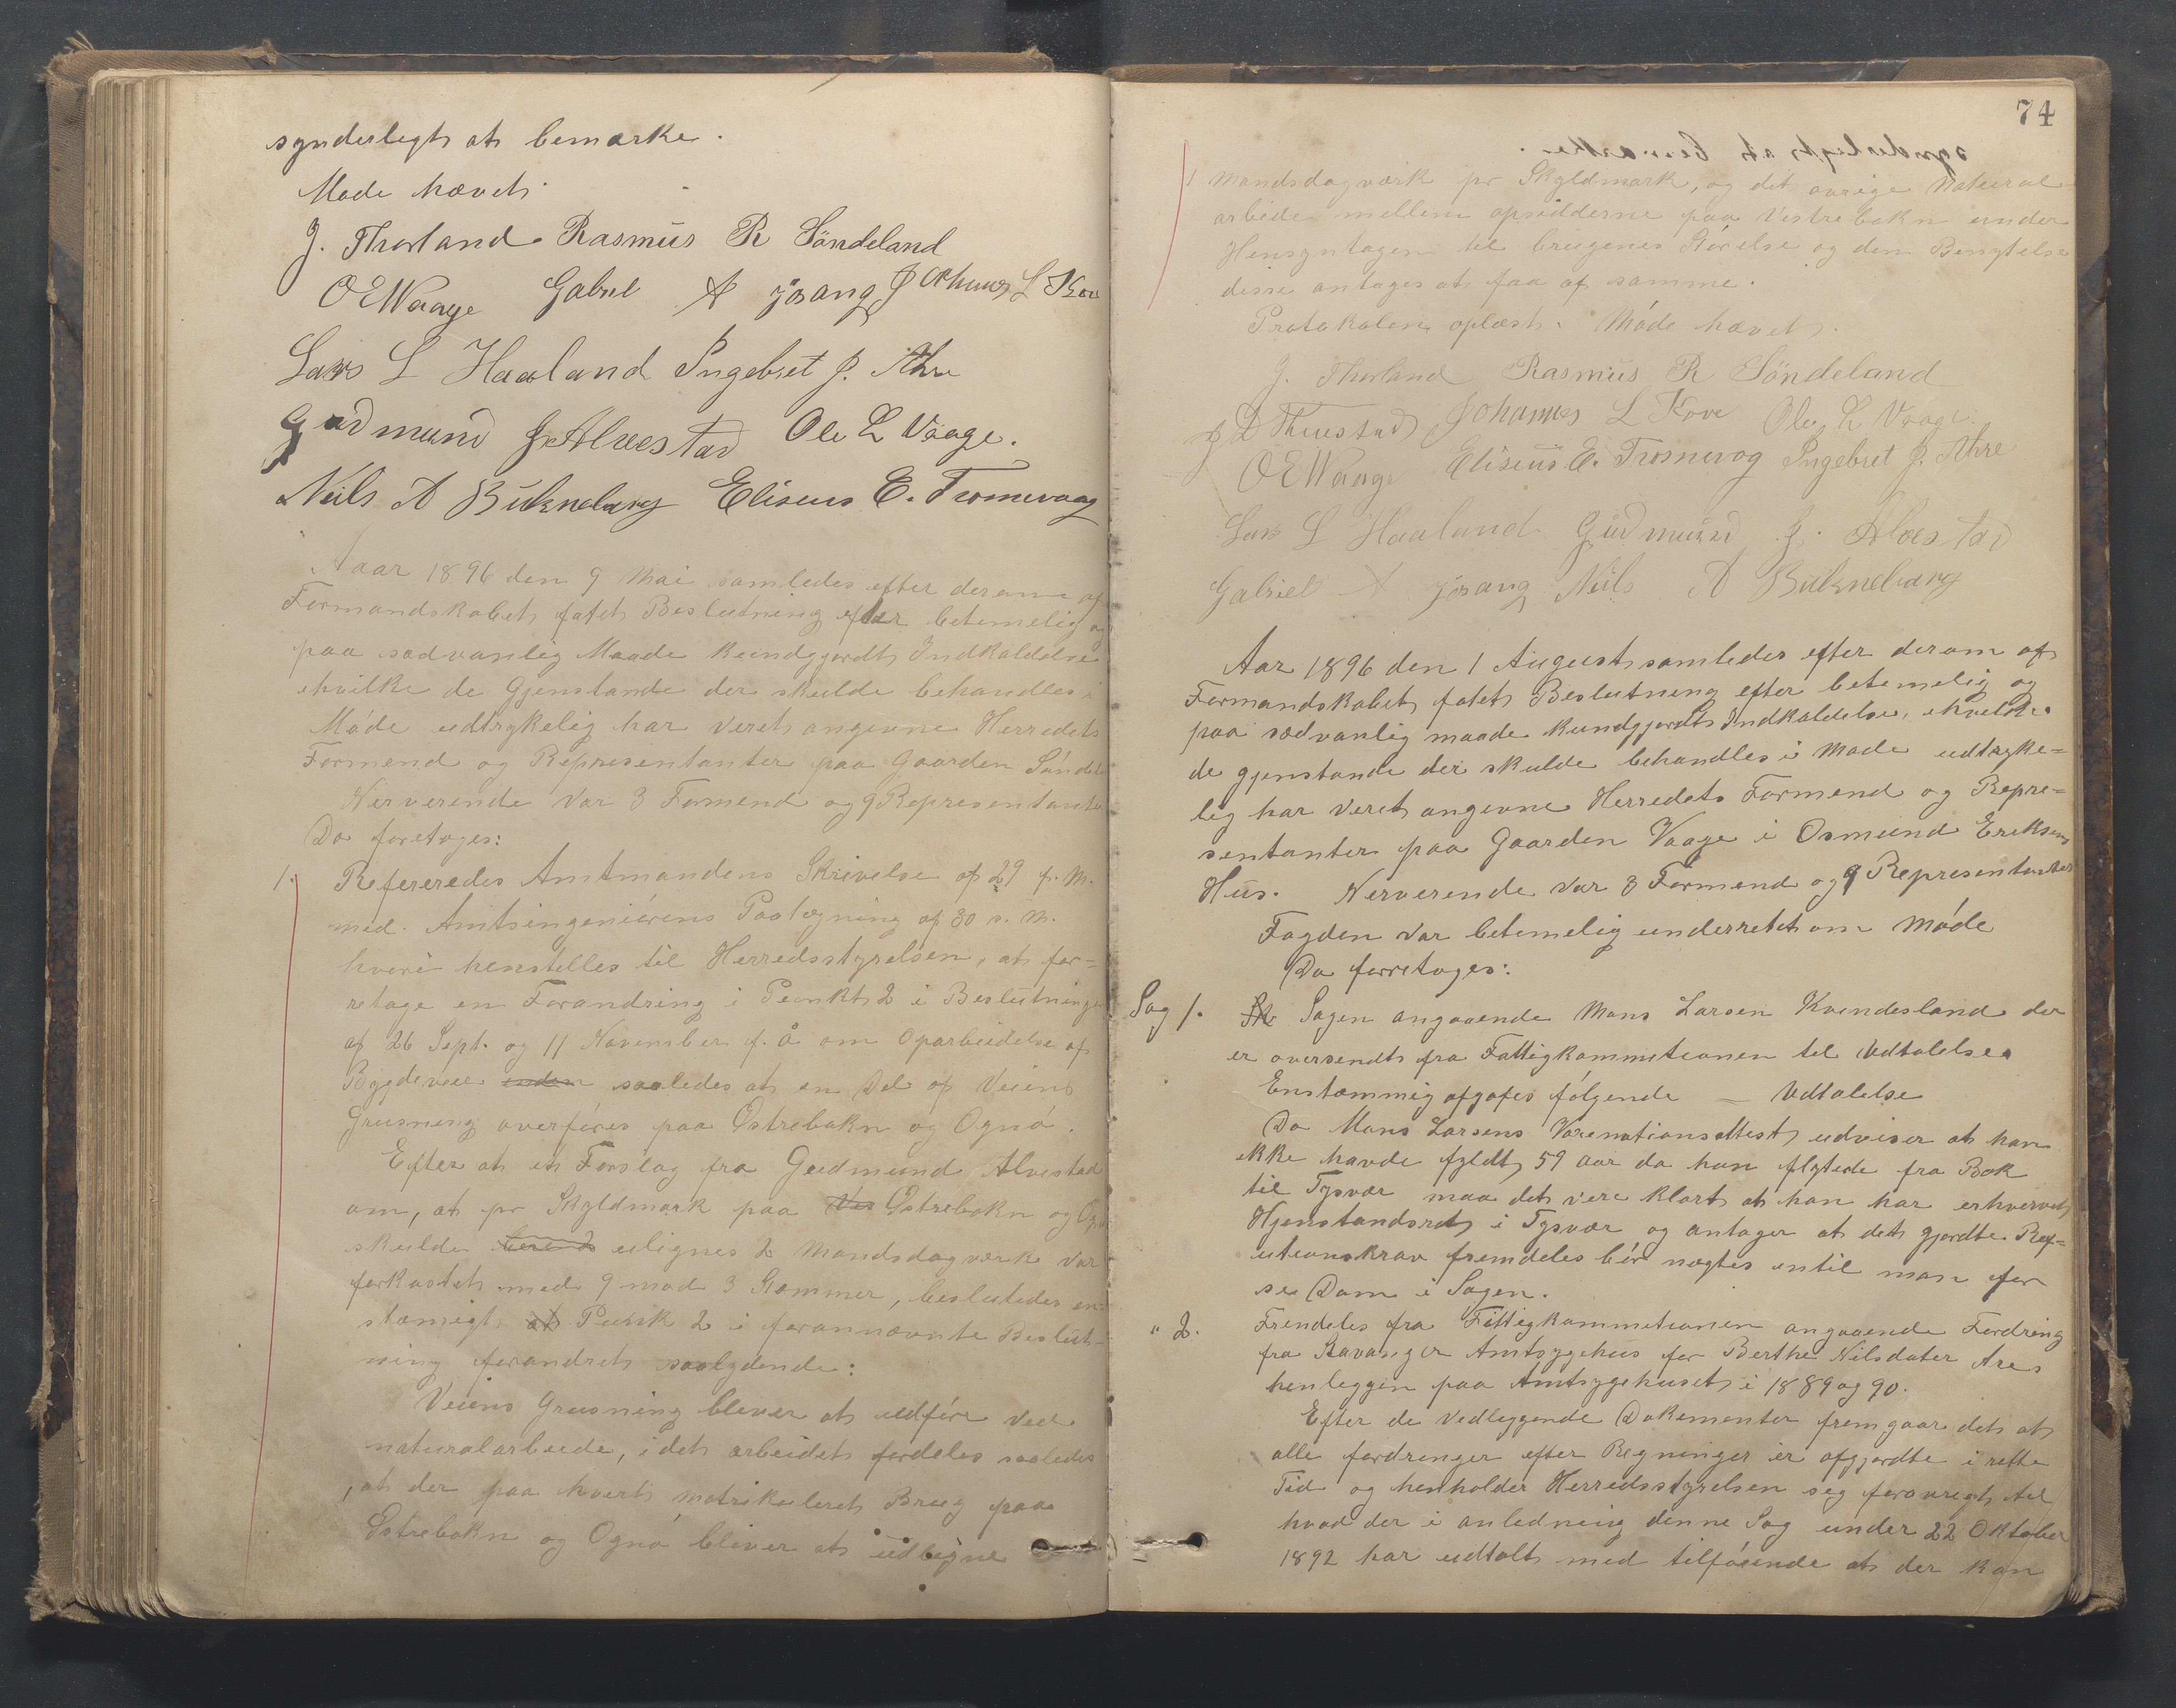 synderlegt at bemærke.
Møde hævet.
J. Thorland Rasmus R Söndeland
O E Waage Gabriel A josang Johannes L Kove
Lars L Haaland Ingebret J. Ahre
Gudmund J. Alvestad Ole L Vaage.
Neils A Bukneberg Eliseus E. Tromevaag
Aaar 1896 den 9 Mai samledes efter derom af
Formandskabet fatet Beslutning efter betemelig og
paa sædvanlig Maade kundgjordt Indkaldelse
ihvilke de Gjenstande der skulde behandles i
Møde udtrykelig har veret angivne Herredets
Formend og Representanter paa Gaarden Sønde
Nerverende var 3 Formend og 9 Representante
Da foretoges:
1. Refereredes Amtmandens Skrivelse af 29 f. M.
med Amtsingeniørens Paategning af 30 s. M.
hvori henstilles til Herredsstyrelsen, at for=
retage en Forandring i Punkt 2 i Beslutningen
af 26 Sept. og 11 November f. å om Oparbeidelse af
Bygdeveie saaledes at en Del af Veiens
Grusning overføres paa Østrebokn og Ognø.
Efter at et Forslag fra Gudmund Alvestad
om, at pr Skyldmark paa Ves Østrebokn og Og
skulde ulignes 2 Mandsdagværk var
forkastet med 9 mod 3 Stemmer, besluttedes en=
stemigt at Punk 2 i forannævnte Beslut-
ning forandret saalydende:
Veiens Grusning blever at udføre ved
naturalarbeide, idet arbeidet fordeles saaledes
, at der paa hvert matrikuleret Brug paa
Østrebokn og Ognø bliver at udligne
74
1 Mandsdagværk pr Skyldmark, og det øvrige Natural
arbeide mellem opsidderne paa Vestrebokn under
Hensyntagen til brugenes Størelse og den Benytelse
disse antages at faa af samme.
Protokolen oplæst. Møde hævet.
J. Thorland Rasmus R Söndeland
Johannes L Kove Ole L Vaage.
O E Waage Eliseus E. Tromevog Ingebret J. Ahre
Lars L Haaland Gudmund J. Alvestad
Gabriel A josang Neils A Bukneberg
Aar 1896 den 1 August samledes efter derom af
Formandskabet fatet Beslutning efter betemelig og
paa sædvanlig maade kundgjordt Indkaldelse, ihvilke
de gjenstande der skulde behandles i Møde udtryke=
lig har veret angivne Herredets Formend og Repre=
sentanter paa Gaarden Vaage i Osmund Eriksens
Hus. Nerverende var 3 Formend og 9 Representanter
Fogden var betemelig underrettet om Møde
Da forretoges:
Sag 1. Sk Sagen angaaende Mons Larsen Kvendesland der
er oversendt fra Fattigkommitionen til Udtalelse.
Enstæmmig afgafes følgende — Udtalelse
Da Mons Larsens Vaxenationsattest udviser at han
ikke havde fyldt 59 aar da han flytede fra Bok
til Tysvær maa det vere klart at han har erhvervet
Hjemstandsret i Tysvær og antager at det gjordte Ref=
utionskrav fremdeles bør nægtes intil man for
se Dom i Sagen.
" 2. Fremdeles fra Fattigkommitionen angaaende Fordring
fra Stavanger Amtsygehus for Berthe Nilsdater Ares
henleggen paa Amtsygehuset i 1889 og 90.
Efter de Vedleggende Dokementer fremgaar det at
alle fordringer efter Regninger er afgjordte i rette
Tid og henholder Herredsstyrelsen seg forøvregt til
hvad der i anledning denne Sag under 22 Oktober
1892 har udtalt med tilføiende at der kan